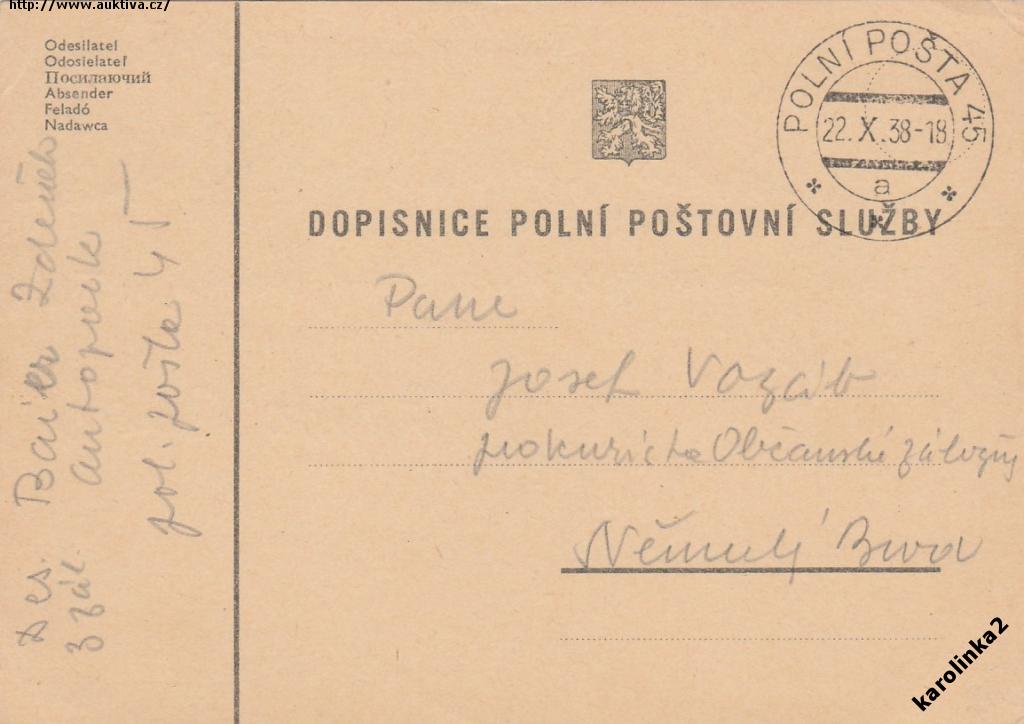 http://www.auktiva.cz/
Odesílatel
Odosielateľ
Посилаючий
Absender
Feladó
Nadawca
POLNÍ POŠTA 45
22. X. 38-18
a
DOPISNICE POLNÍ POŠTOVNÍ SLUŽBY
Pane
Josef Vozáb
prokurista Občanské záložny
Německý Brod
Des. Baier Zdeněk
autopark
pol. pošta 45
karolinka2